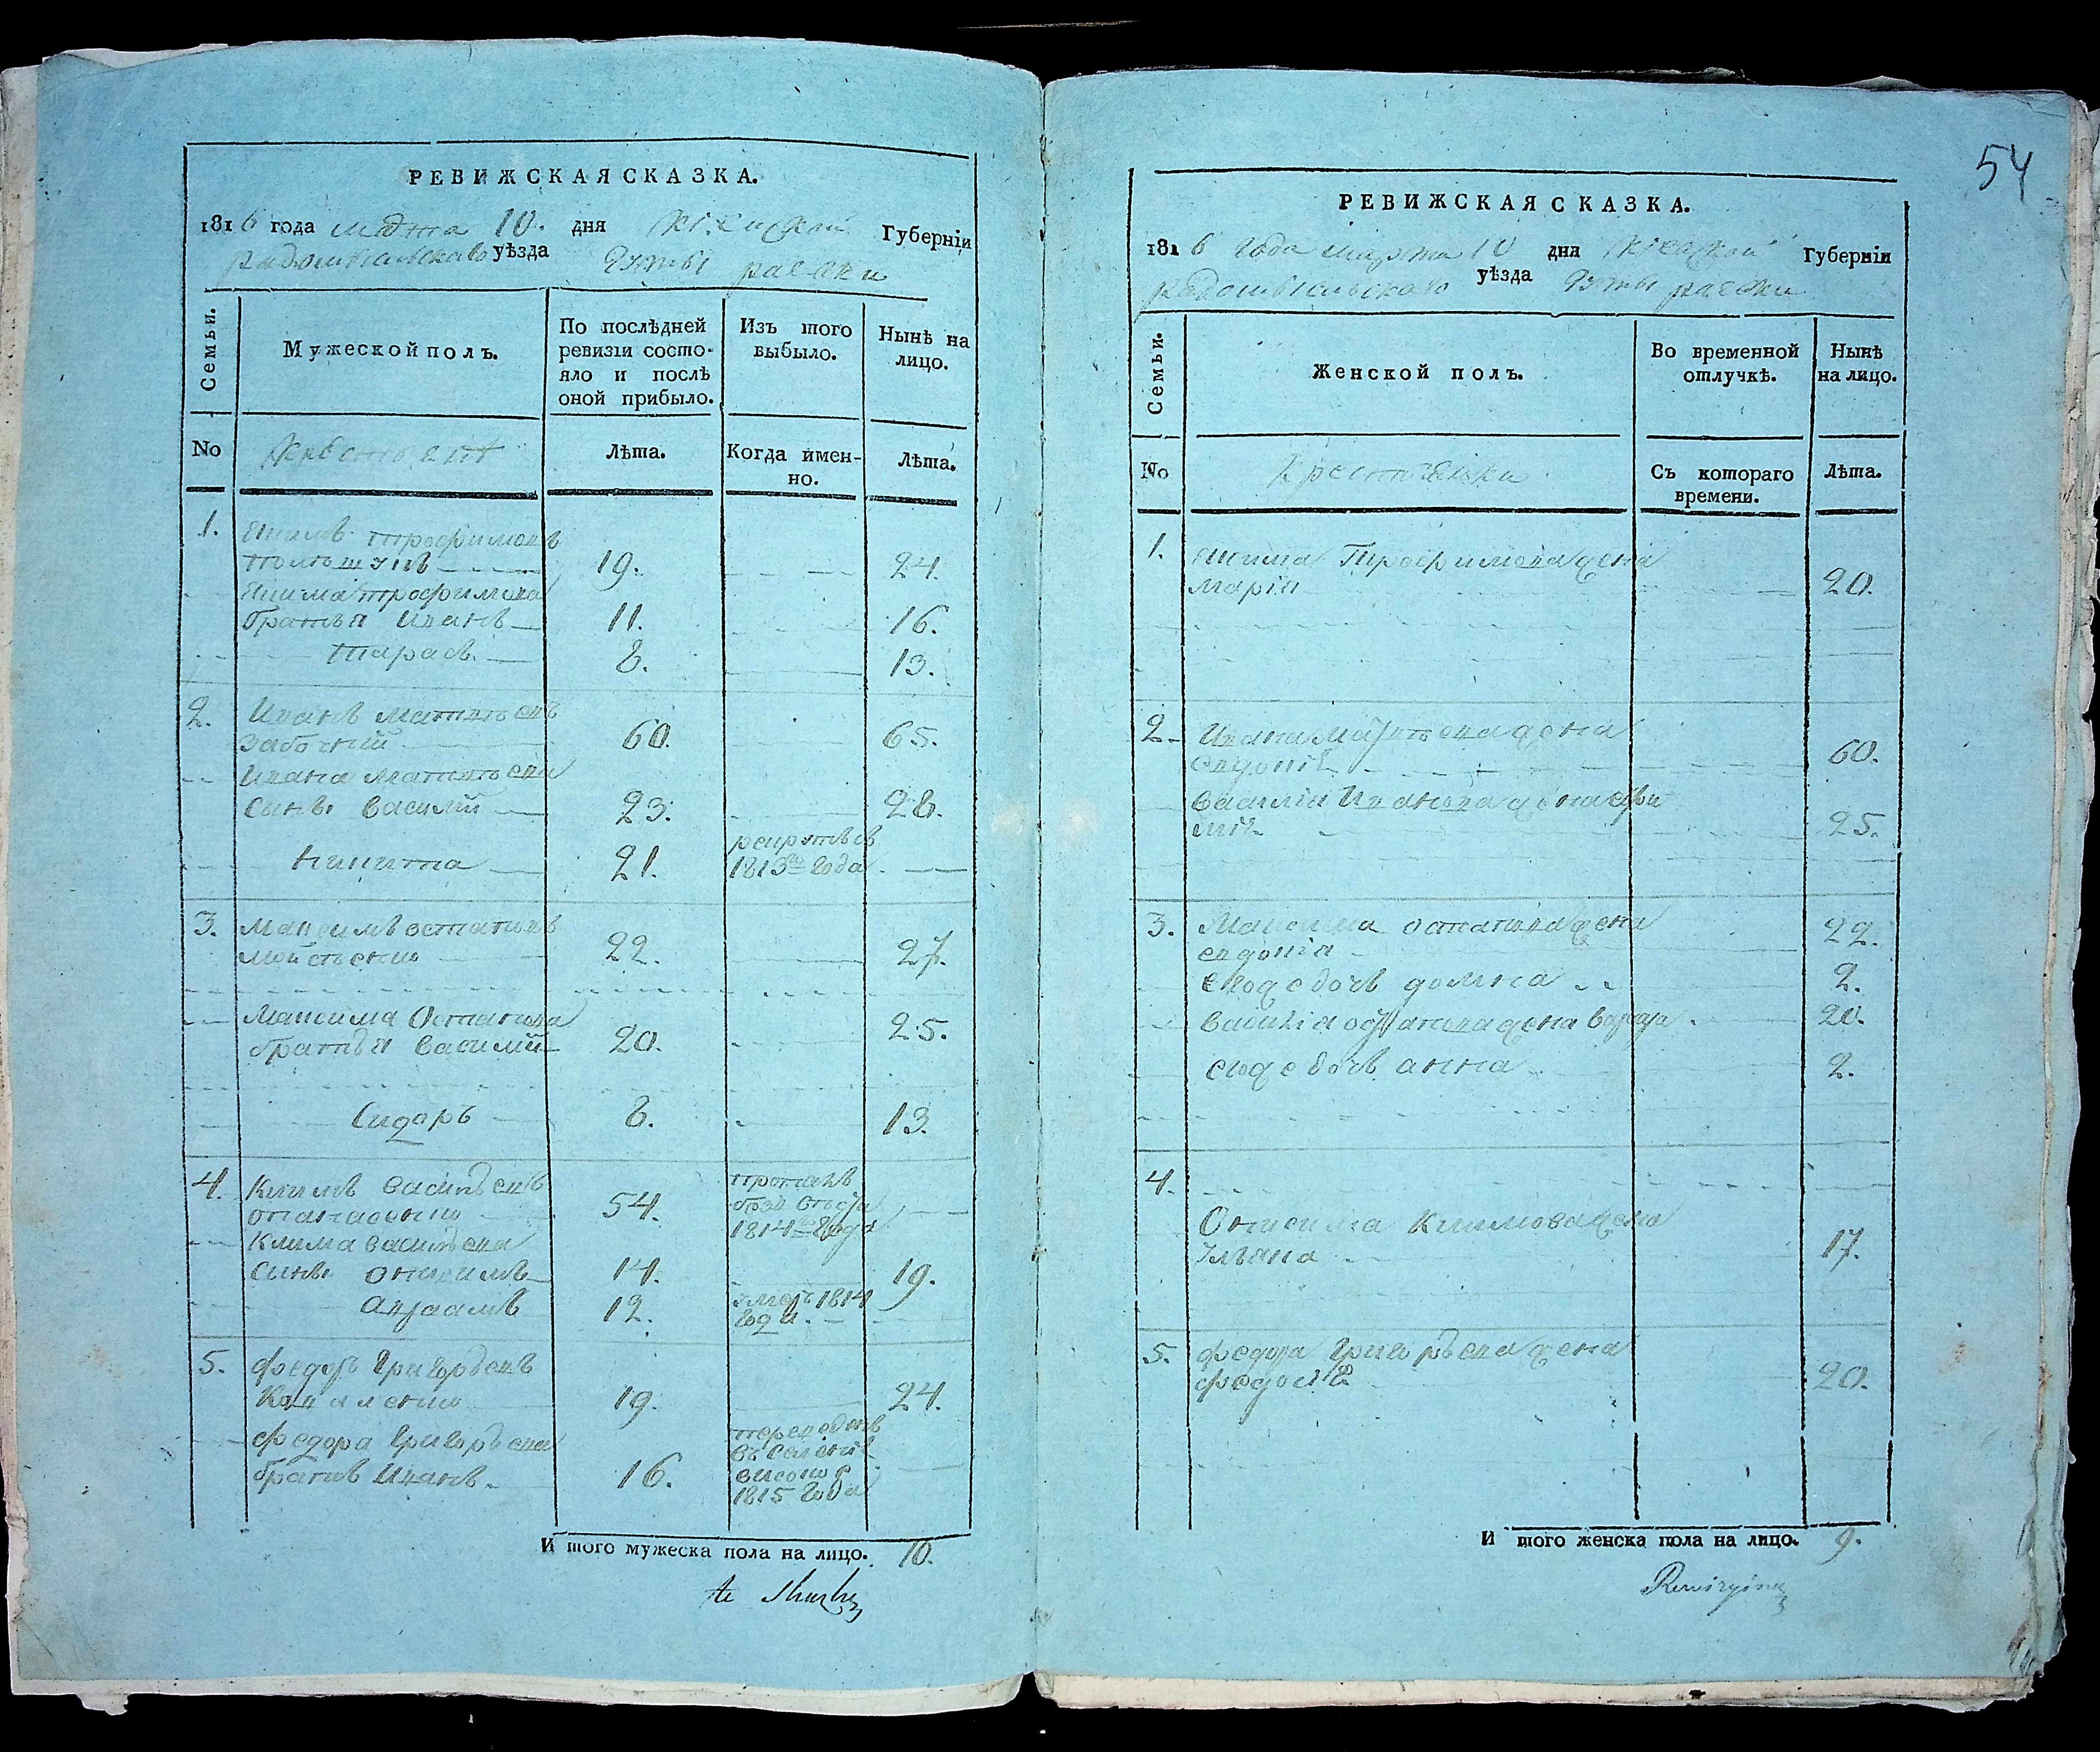 РЕВИЖСКАЯ СКАЗКА.
1816 года марта 10. дня Кіевской Губерніи
радомысльскаго уѣзда Гуты раески
Семьи.
Мужеской полъ.
По послѣдней ревизіи состояло и послѣ оной прибыло.
Изъ того выбыло.
Нынѣ на лицо.
No
Лѣта.
Когда именно.
Лѣта.
1. Якимъ трофимовъ
19. 24.
Якима трофимова
братья Иванъ 11. 16.
тарасъ. 8. 13.
2. Иванъ матвѣевъ
60. 65.
Ивана матвѣева
сынъ. василій 23. 28.
рекрутъ въ
никита 21. 1813го года
3. Максимъ остаповъ
22. 27.
Максима Остапова
братья василій 20. 25.
Сидоръ 8. 13.
4. Климъ васильевъ
опанасенко 54. 1814го года
Клима васильева
сынъ. онисимъ 14. 19.
авраамъ 12. умеръ 1814 года.
5. федоръ григорьевъ
19. 24.
федора григорьева
братъ Иванъ. 16.
переведенъ
въ селеніе
1815 года
И того мужеска пола на лицо. 10.
54
РЕВИЖСКАЯ СКАЗКА.
1816 года марта 10 дня Кіевской Губерніи
радомысльскаго уѣзда Гуты раески
Семьи.
Женской полъ.
Во временной отлучкѣ.
Нынѣ на лицо.
No
Крестьянки
Съ котораго времени.
Лѣта.
1. Якима Трофимова жена
марія 20.
2. Ивана матвѣева жена
60.
василія Иванова жена ефи
мія 25.
3. Максима остапова жена 22.
евдокія
еиоже дочь домна 2.
василія остапова жена варвара. 20.
еиоже дочь анна 2.
4.
Онисима Климова жена
Ульяна 17.
5. федора григорьева жена
20.
И того женска пола на лицо. 9.